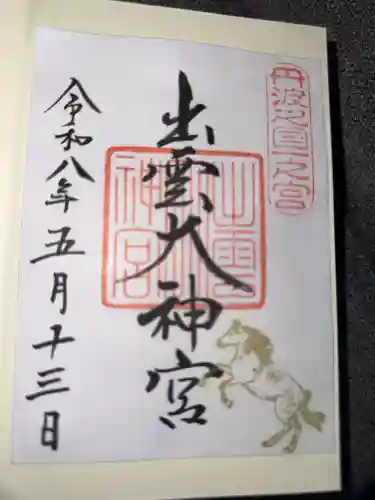 丹波之國一之宮
出雲大神宮
令和八年五月十三日